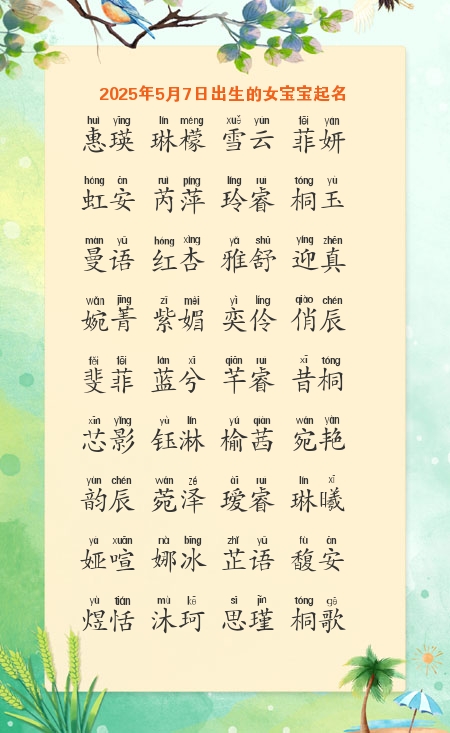 2025年5月7日出生的女宝宝起名
huì yīng lín méng xuě yún fēi yán
惠瑛 琳檬 雪云 菲妍
hóng ān ruì píng líng ruì tóng yù
虹安 芮萍 玲睿 桐玉
màn yǔ hóng xìng yǎ shū yíng zhēn
曼语 红杏 雅舒 迎真
wǎn jīng zǐ mèi yì líng qiào chén
婉菁 紫媚 奕伶 俏辰
fěi fēi lán xī qiān ruì xī tóng
斐菲 蓝兮 芊睿 昔桐
xīn yǐng yù lín yú qiàn wǎn yàn
芯影 钰淋 榆茜 宛艳
yùn chén wǎn zé ài ruì lín xī
韵辰 菀泽 瑷睿 琳曦
yà xuān nà bīng zhǐ yǔ fù ān
娅喧 娜冰 芷语 馥安
yù tián mù kē sī jǐn tóng gē
煜恬 沐珂 思瑾 桐歌